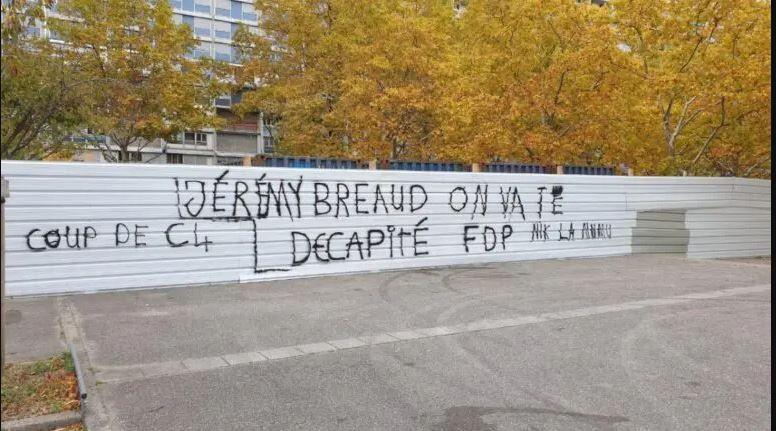 JÉRÉMY BREAUD ON VA TE
COUP DE C4
DECAPITÉ FDP NIK LA